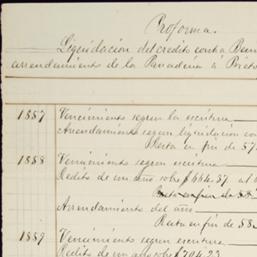 Proforma.
Liquidación del credito contra
arrendamiento de la Panaderia á
1887 Vencimiento segun la escritura
Arrendamiento segun liquidación
Resta en fin de 87
1888 Vencimiento segun escritura
Redito de un año sobre $664.37 al
Arrendamiento del año
Resta en fin de 88
1889 Vencimiento segun escritura
Redito de un año sobre $704.23